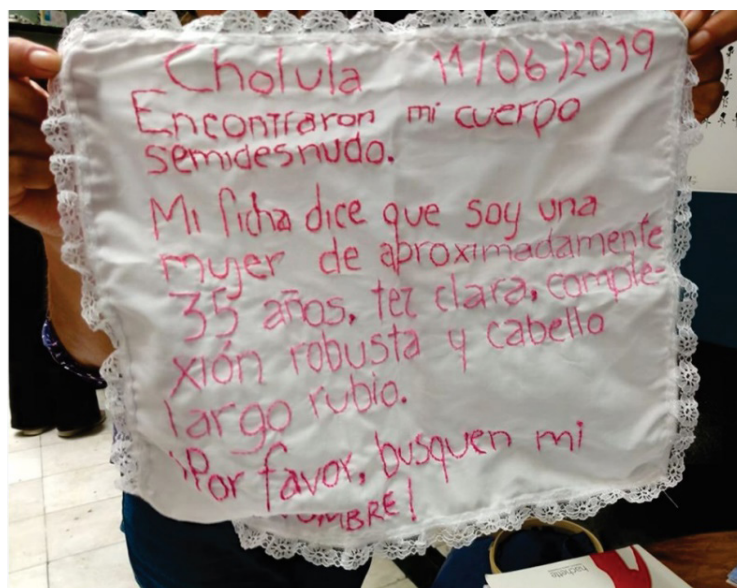 Cholula 11/06/2019
Encontraron mi cuerpo
semidesnudo.
Mi ficha dice que soy una
mujer de aproximadamente
35 años, tez clara, comple-
xión robusta y cabello
largo rubio.
¡Por favor, busquen mi
OMBRE!
hachette